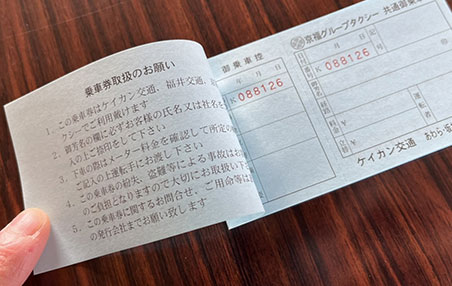 乗車券取扱のお願い
1. この乗車券はケイカン交通、福井交通、
クシーでご利用戴けます
2. 御署名の欄に必ずお客様の氏名又は社名を
人の上ご捺印をして下さい
3. 下車の際はメーター料金を確認して所定の
ご記入の上運転手にお渡し下さい
4. この乗車券の紛失、盗難等による事故はお
のご負担となりますので大切にお取扱い下
5. この乗車券に関するお問合せ、ご用命等は
の発行会社までお願い致します
御乗車控
年 月 日
K 088126
京福グループタクシー 共通御乗車
年 月 日
K 088126
金額 ¥
運転者
ケイカン交通 あわら・坂